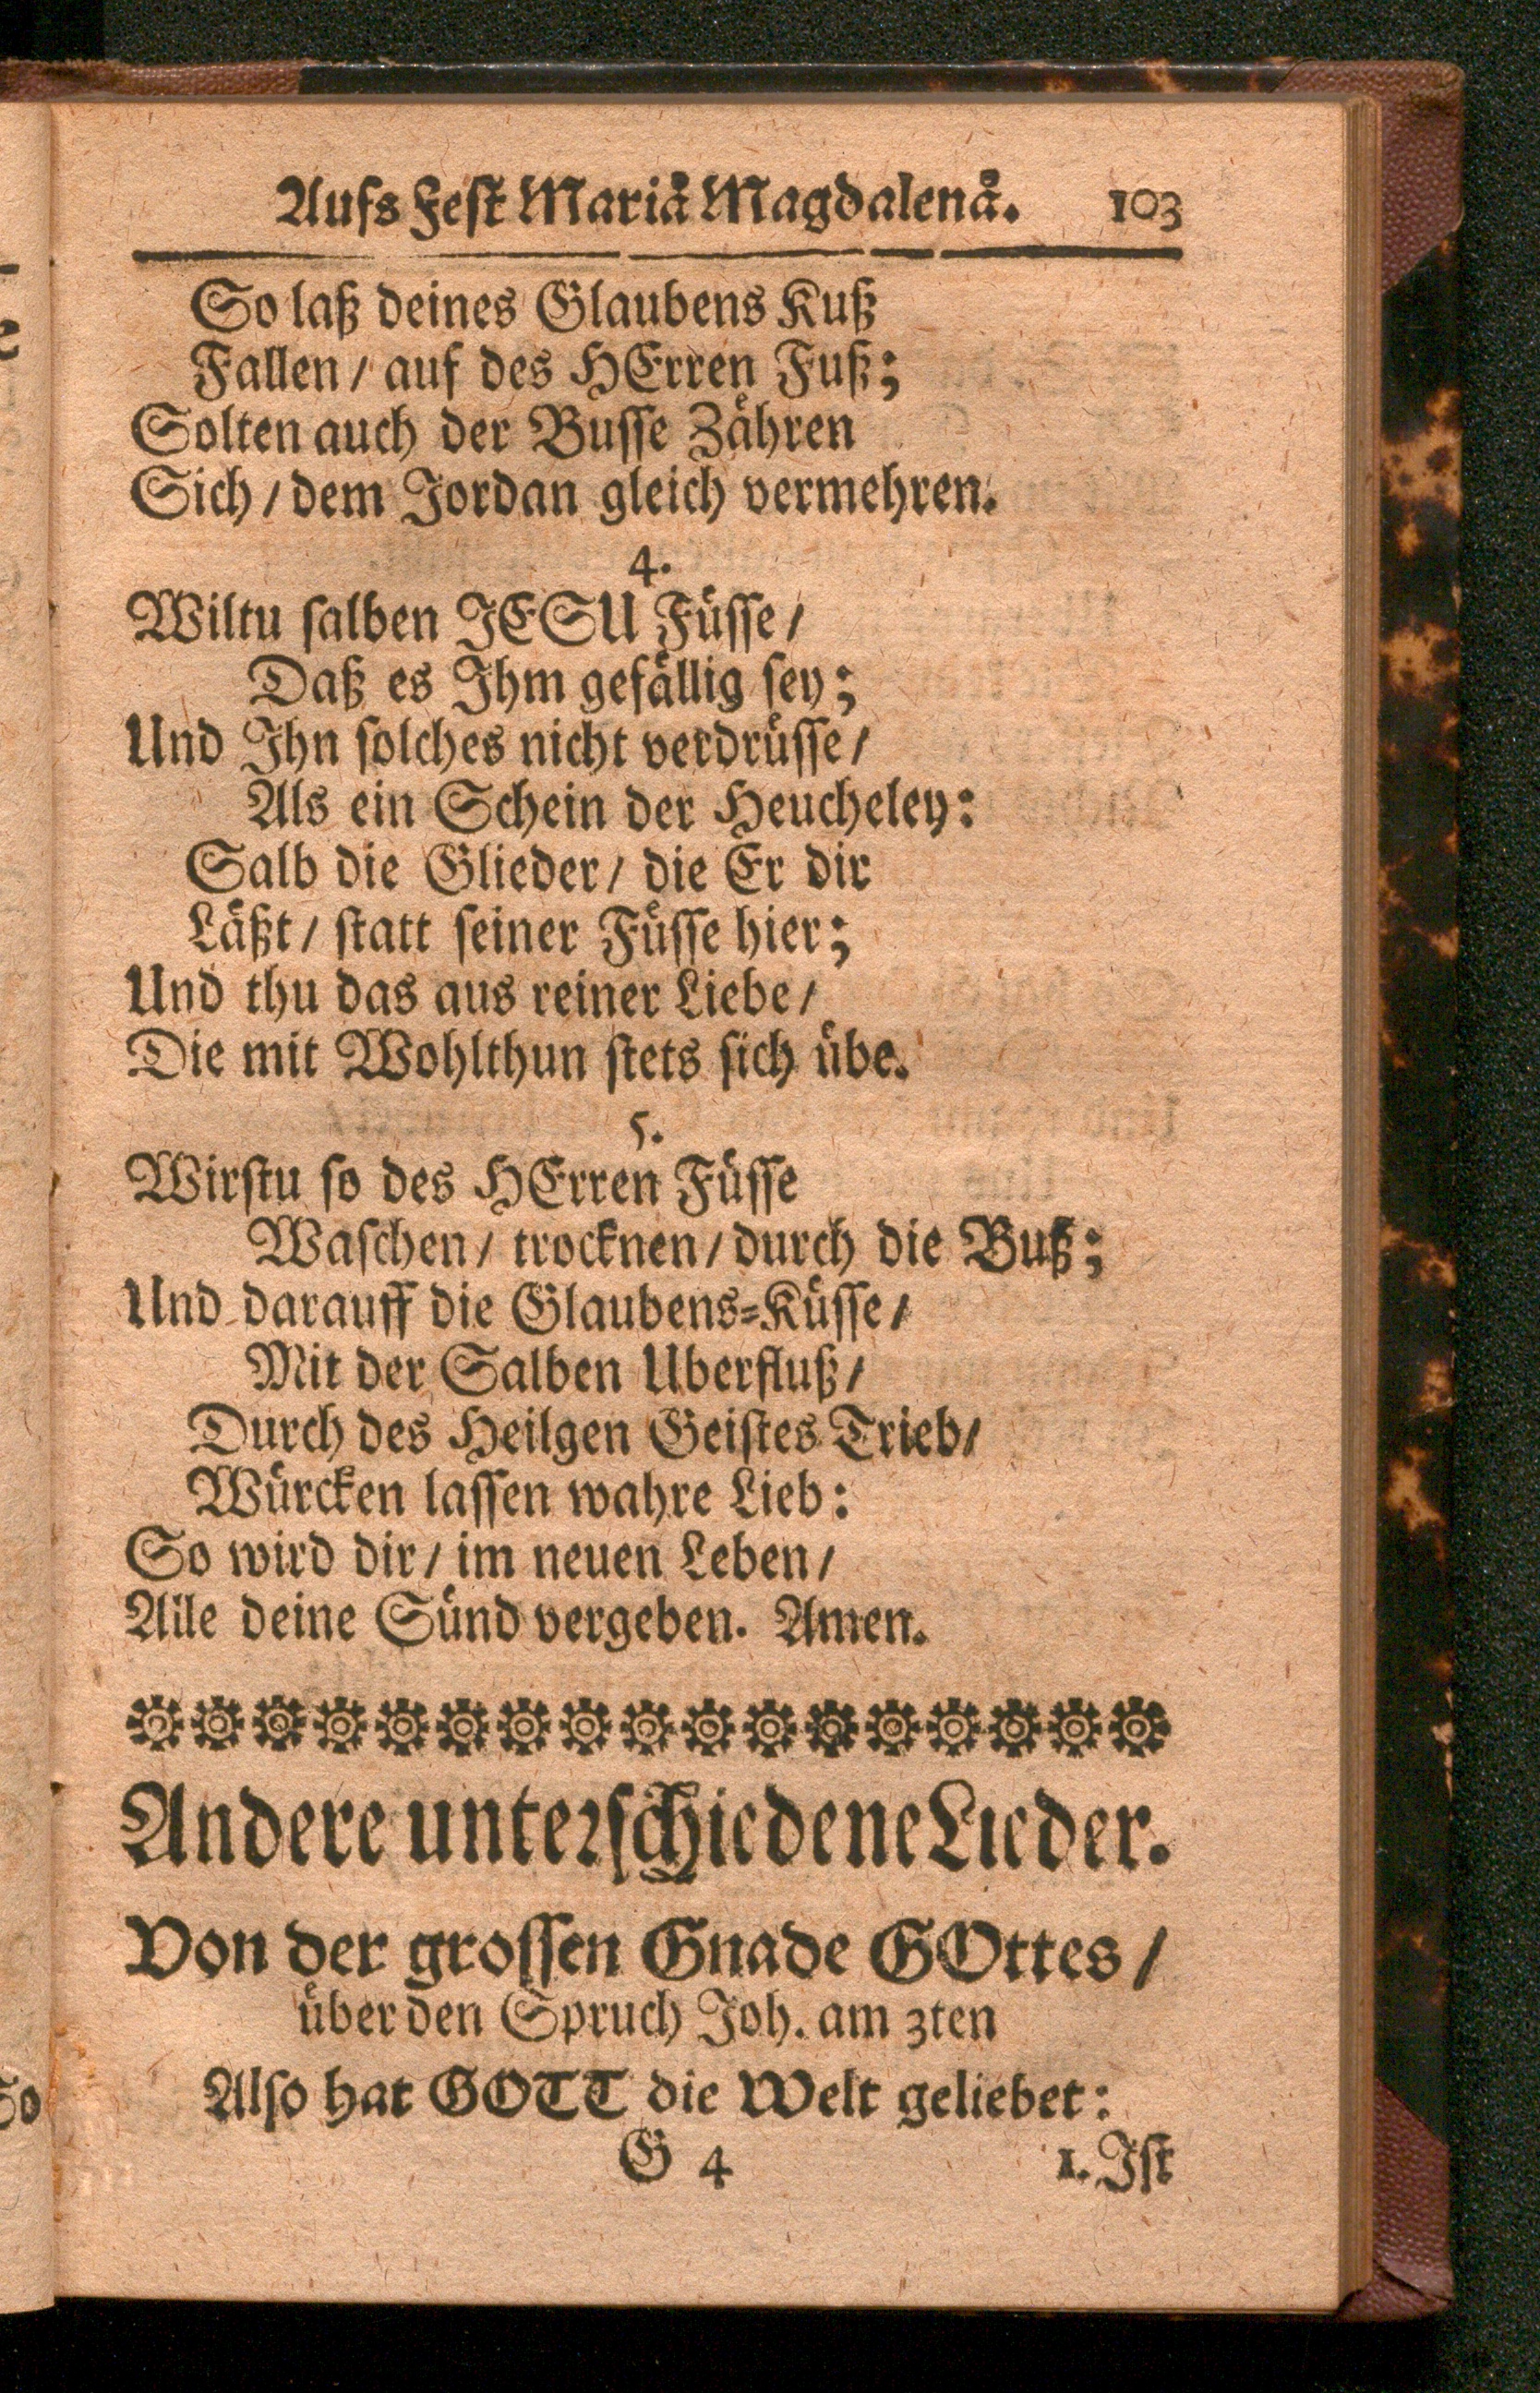 Aufs Fest Mariä Magdalenä. 103
So laß deines Glaubens Kuß
Fallen / auf des HErren Fuß;
Solten auch der Busse Zähren
Sich / dem Jordan gleich vermehren.
4.
Wiltu salben JESU Füsse /
Daß es Ihm gefällig sey;
Und Ihn solches nicht verdrüsse /
Als ein Schein der Heucheley:
Salb die Glieder / die Er dir
Läßt / statt seiner Füsse hier;
Und thu das aus reiner Liebe /
Die mit Wohlthun stets sich übe.
5.
Wirstu so des HErren Füsse
Waschen / trocknen / durch die Buß;
Und darauff die Glaubens-Küsse /
Mit der Salben Uberfluß /
Durch des Heilgen Geistes Trieb /
Würcken lassen wahre Lieb:
So wird dir / im neuen Leben /
Alle deine Sünd vergeben. Amen.
Andere unterschiedene Lieder.
Von der grossen Gnade GOttes /
über den Spruch Joh. am 3ten
Also hat GOTT die Welt geliebet:
G 4 1. Ist
So